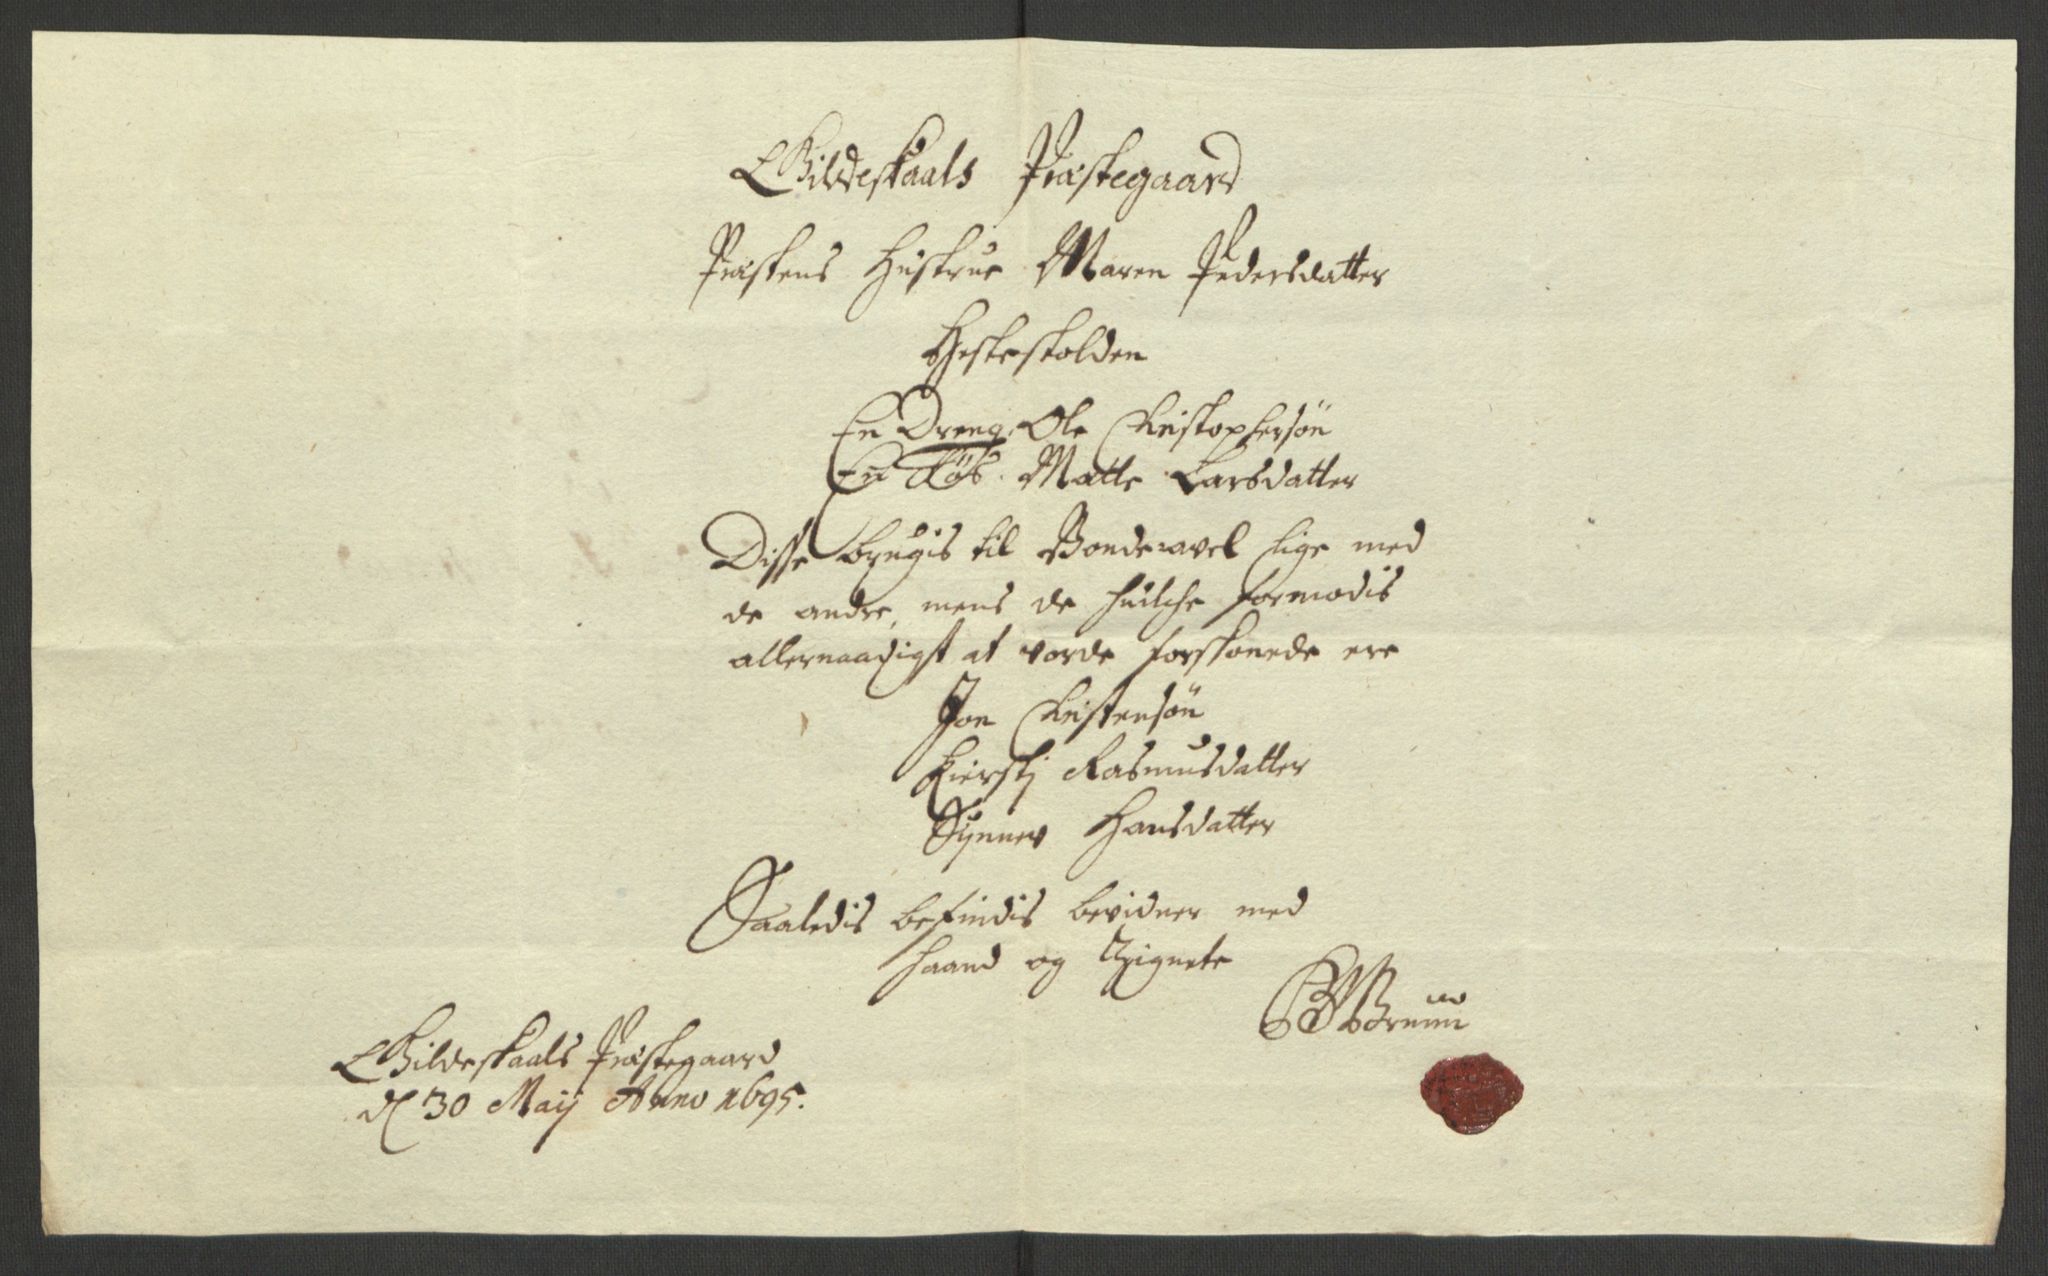 Gildeskaals Præstegaard
Præstens Hustrue Maren Pedersdatter
En Dreng. Ole Christophersøn
En Tøs. Matte Larsdatter
Disse brugis til Bonde avel lige med
de andre, mens de huilche formodis
allernaadigst at vorde forskonede ere
Jon Christensøn
Kierstj Rasmusdatter
Synnev Hansdatter
Saaledis befindis bevidner med
haand og Zignete
Gildeskaals Præstegaard
d 30 Maij Anno 1695.